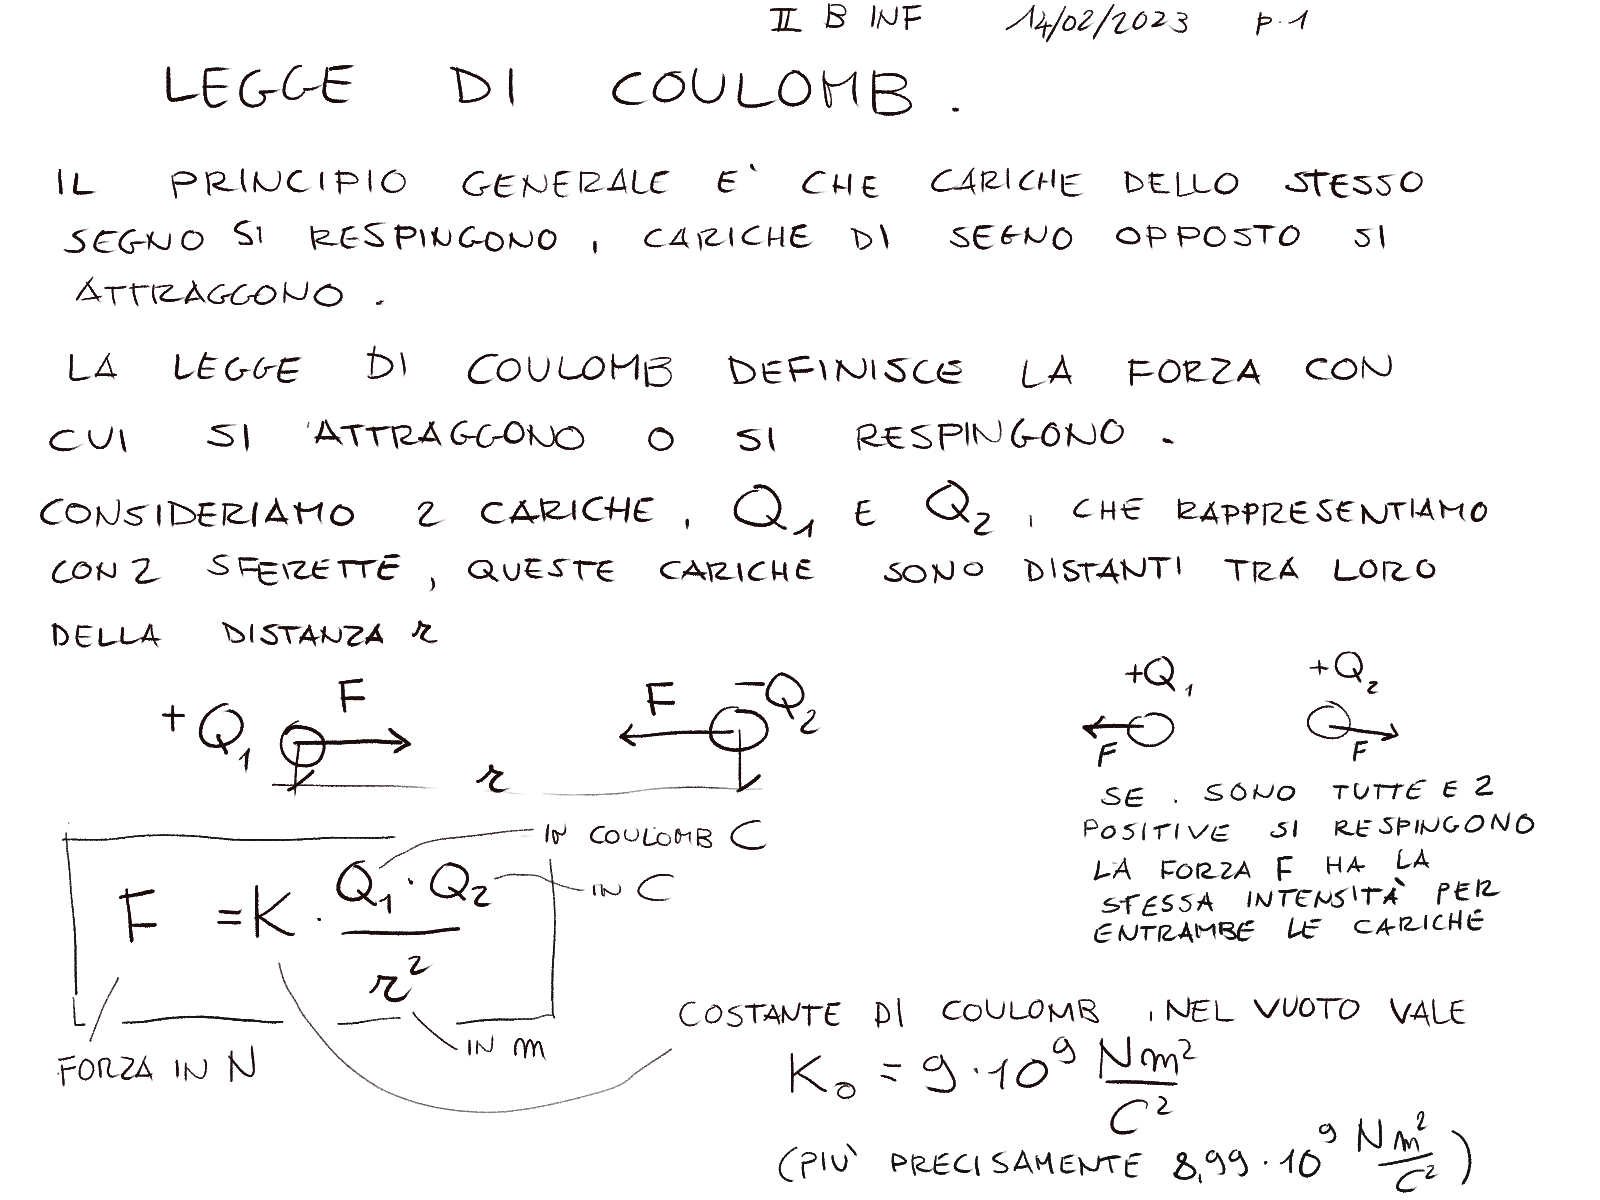 II B INF 14/02/2023 p.1
LEGGE DI COULOMB.
IL PRINCIPIO GENERALE E' CHE CARICHE DELLO STESSO
SEGNO SI RESPINGONO, CARICHE DI SEGNO OPPOSTO SI
ATTRAGGONO.
LA LEGGE DI COULOMB DEFINISCE LA FORZA CON
CUI SI ATTRAGGONO O SI RESPINGONO.
CONSIDERIAMO 2 CARICHE, Q₁ E Q₂, CHE RAPPRESENTIAMO
CON 2 SFERETTE, QUESTE CARICHE SONO DISTANTI TRA LORO
DELLA DISTANZA r
+Q₁ F F -Q₂
r
+Q₁ +Q₂
F F
SE. SONO TUTTE E 2
POSITIVE SI RESPINGONO
LA FORZA F HA LA
STESSA INTENSITÀ PER
ENTRAMBE LE CARICHE
IN COULOMB C
IN C
F = K · Q₁ · Q₂ / r²
FORZA IN N
IN m
COSTANTE DI COULOMB, NEL VUOTO VALE
K₀ = 9·10⁹ Nm²/C²
(PIÙ PRECISAMENTE 8,99·10⁹ Nm²/C²)